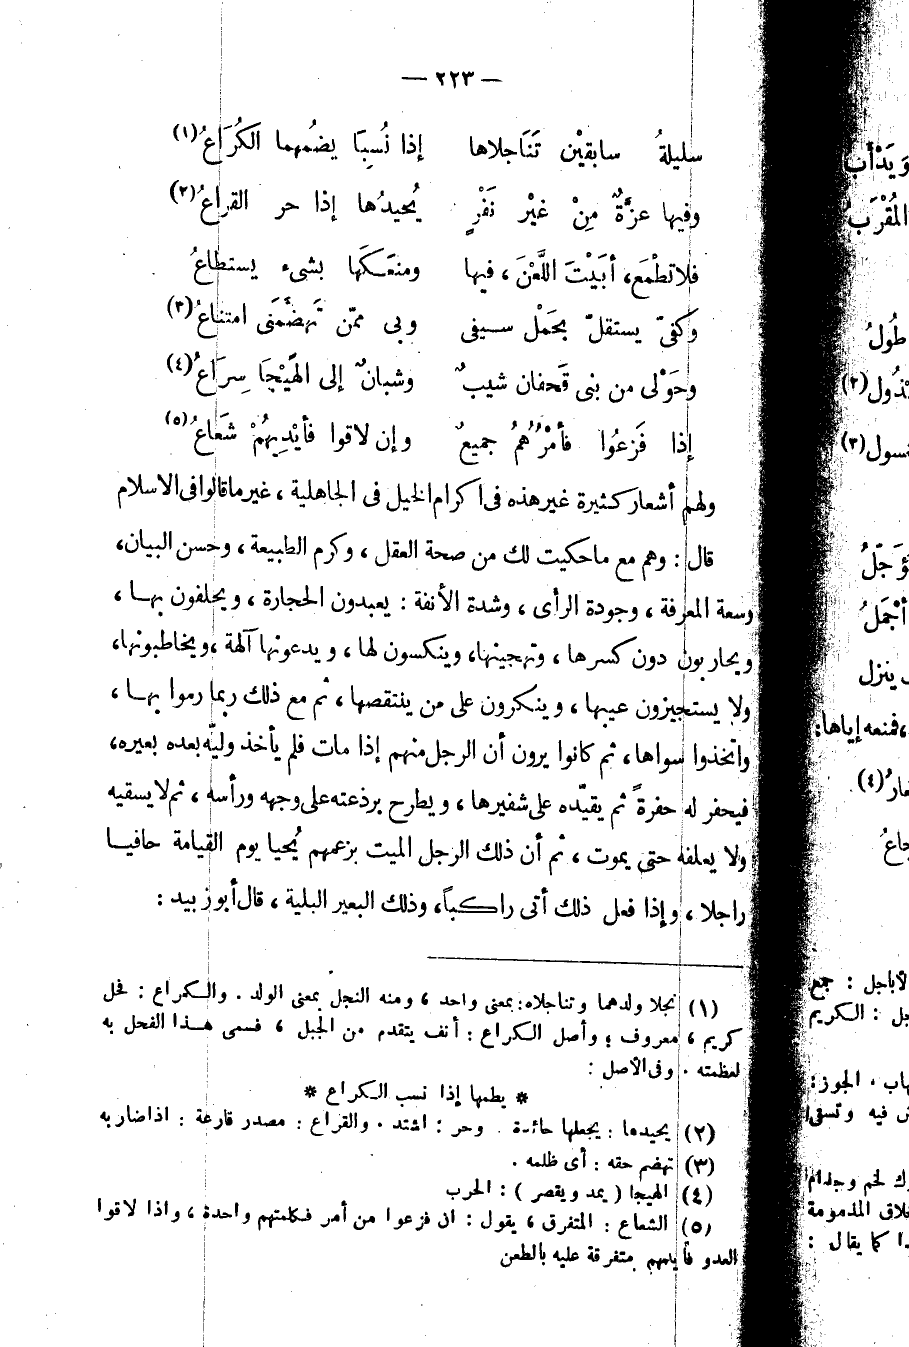 — ٢٢٣ —
سليلةُ سابقيْن تَنَاجلاها إذا نُسِبَا يضُمهما الكُرَاعُ (١)
وفيها عزَّةٌ مِنْ غيْر نَفْرٍ يُحيدُها إذا حر القراعُ (٢)
فلا تطْمَع، أبَيْتَ اللَّعْنَ، فيها ومنعَكَها بشىء يستطاعُ
وكفىّ يستقلّ بحَمْل سيفى وبى ممّن تَهضَّمَنى امتناعُ (٣)
وحَوْلى من بنى قَحفان شيبٌ وشبانٌ إلى الهَيْجَا سِرَاعُ (٤)
إذا فَزِعُوا فأمْرُهُمُ جميعٌ وإن لاقوا فأيْدِيهُمْ شَعَاعُ (٥)
ولهم أشعار كثيرة غير هذه فى اكرام الخيل فى الجاهلية ، غير ما قالوا فى الاسلام
قال : وهم مع ما حكيت لك من صحة العقل ، وكرم الطبيعة ، وحسن البيان،
وسعة المعرفة ، وجودة الرأى ، وشدة الأنفة : يعبدون الحجارة ، ويحلفون بها ،
ويحاربون دون كسرها ، وتهجينها، وينكسون لها ، ويدعونها آلهة ،ويخاطبونها،
ولا يستجيزون عيبها ، وينكرون على من ينتقصها ، ثم مع ذلك ربما رموا بها ،
واتخذوا سواها، ثم كانوا يرون أن الرجل منهم إذا مات فلم يأخذ وليّه بعده بعيره،
فيحفر له حفرةً ثم يقيّده على شفيرها ، ويطرح برذعته على وجهه ورأسه ، ثم لا يسقيه
ولا يعلفه حتى يموت ، ثم أن ذلك الرجل الميت بزعمهم يُحيا يوم القيامة حافيا
راجلا ، وإذا فعل ذلك أتى راكباً، وذلك البعير البلية ، قال أبو زبيد :
(١) نجلا ولدهما وتناجلاه: بمعنى واحد ، ومنه النجل بمعنى الولد . والكراع : فحل
كريم ، معروف ؛ وأصل الكراع : أنف يتقدم من الجبل ، فسمى هذا الفحل به
لعظمته . وفى الأصل :
* يطمها إذا نسب الكراع *
(٢) يحيدها : يجعلها حائدة . وحر : اشتد . والقراع : مصدر قارعة : اذا ضاربه
(٣) تهضم حقه : أى ظلمه .
(٤) الهيجا ( يمد ويقصر ) : الحرب
(٥) الشعاع : المتفرق ، يقول : ان فزعوا من أمر فكلمتهم واحدة ، واذا لاقوا
العدو فأيديهم متفرقة عليه بالطعن
ويَدْأب
المُقْرَبُ
طُولُ
(٢)
(٣)
أجْمَلُ
ينزل
،فمنعه إياها:
(٤)
: جمع
: الكريم
، الجوز:
فيه وتسقى
لخم وجذام
المذمومة
كما يقال :